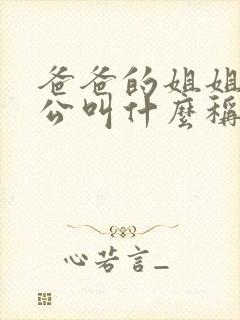 爸爸的姐姐
公叫什麼稱
心若言_